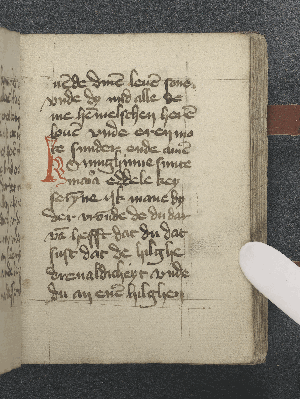 uende dinen leuen sone
vnde dy mid alle de
me hemelschen heren
louen vnde eren mo
te sunder ende amen
Koninghinne sunte
maria eddele key
serynne ik mane dy
der vroude de du dar
van hefft dat du dat
sust dat de hilghe
dreualdicheyt vnde
du an enen hilghen